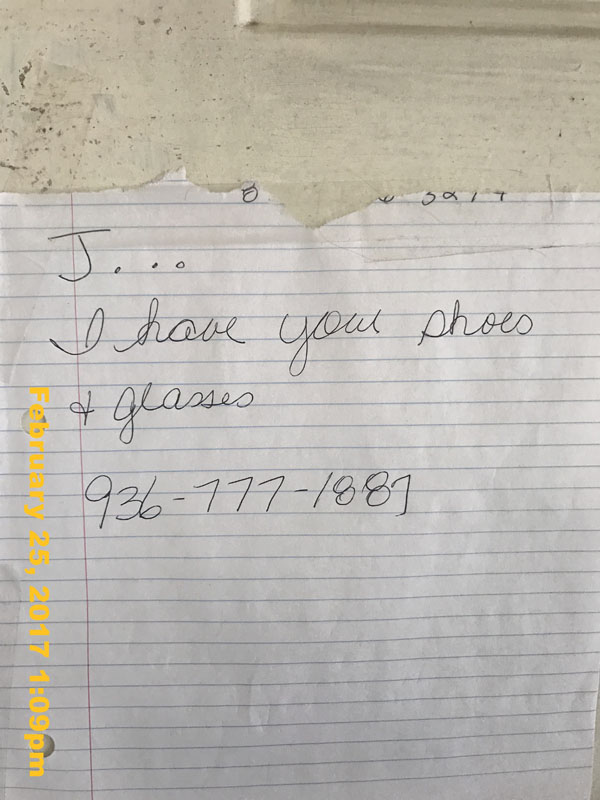 J....
I have your shoes
& glasses
936-777-1887
February 25, 2017 1:09pm